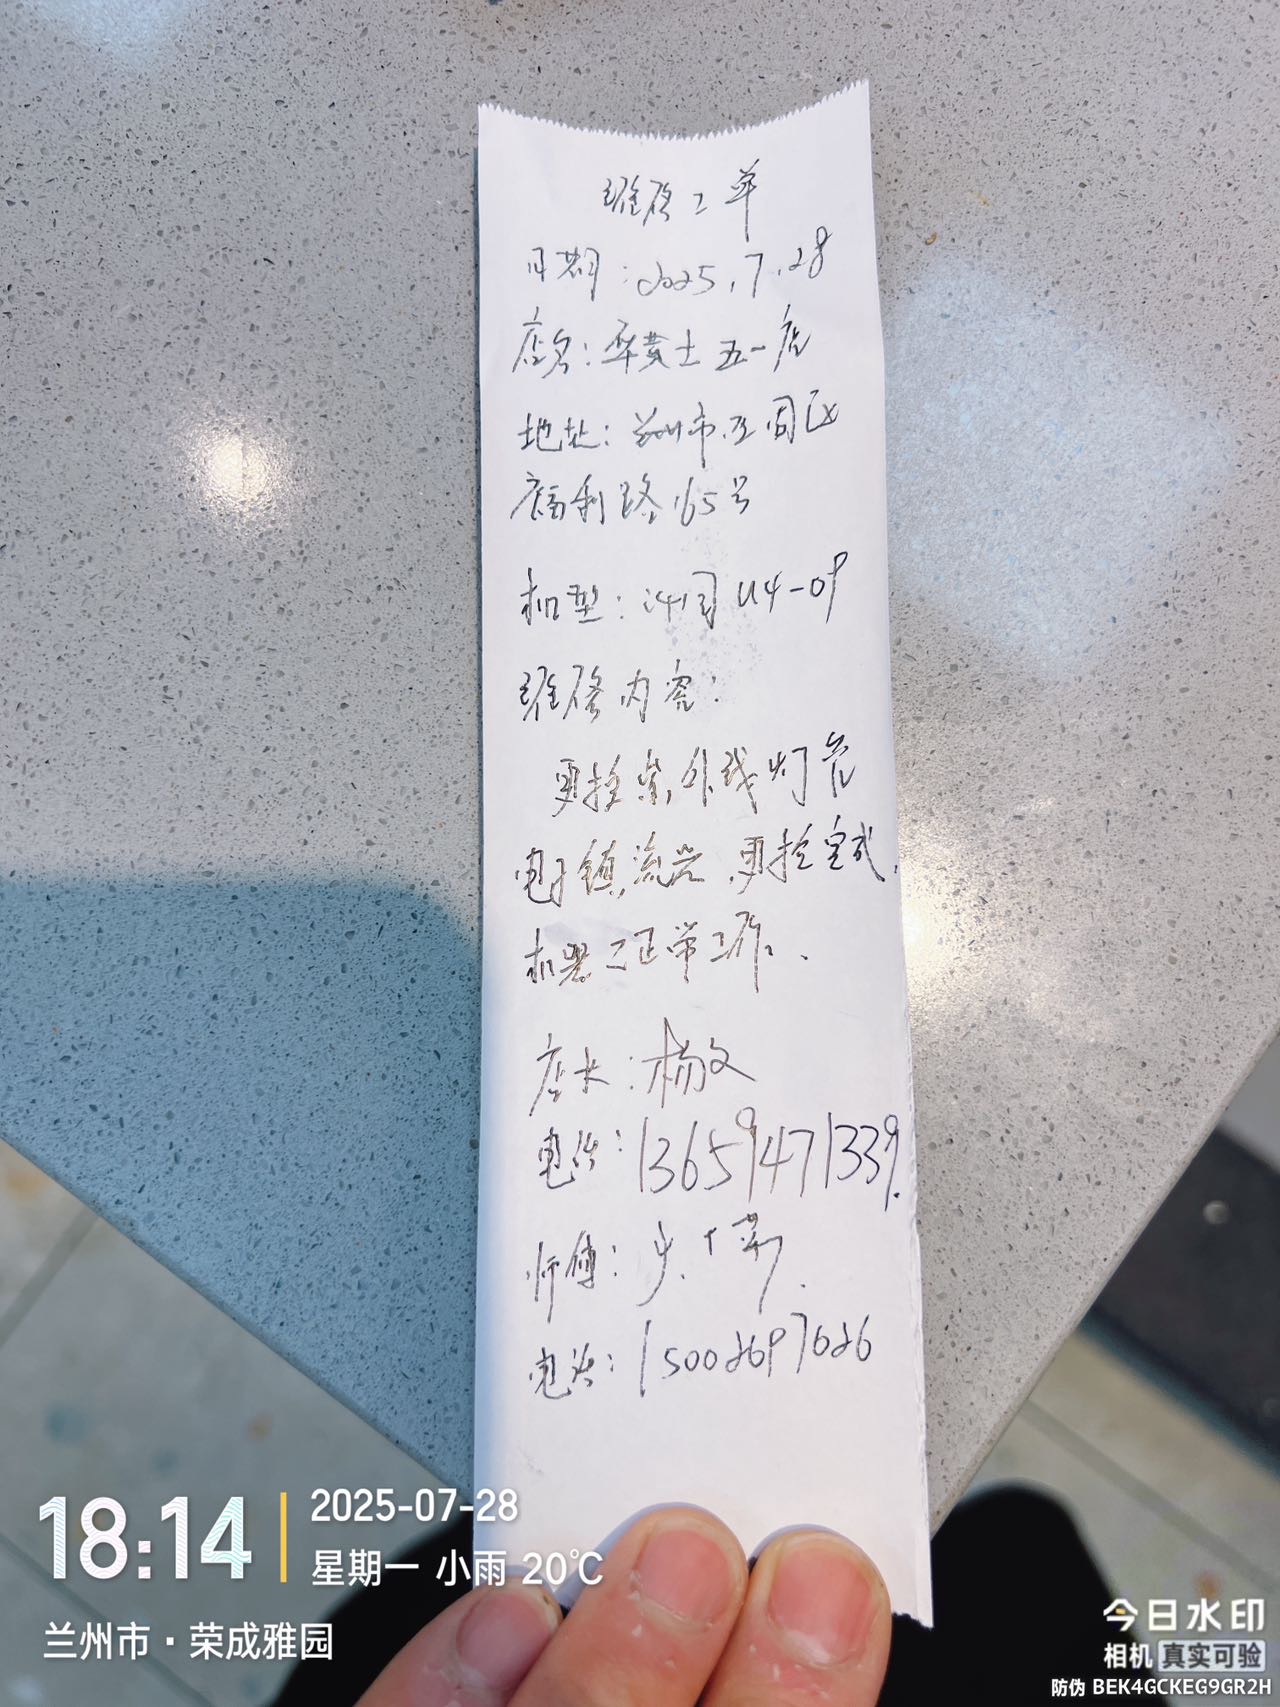 维修工单
日期：2025.7.28
店名：华莱士五一店
地址：兰州市西固区
福利路165号
机型：沁园U4-09
维修内容：
更换紫外线灯管
电子镇流器，更换完成，
机器已正常工作。
店长：杨文
电话：13659471339.
师傅：
电话：15002697626
18:14
2025-07-28
星期一 小雨 20℃
兰州市·荣成雅园
今日水印
相机 真实可验
防伪 BEK4GCKEG9GR2H